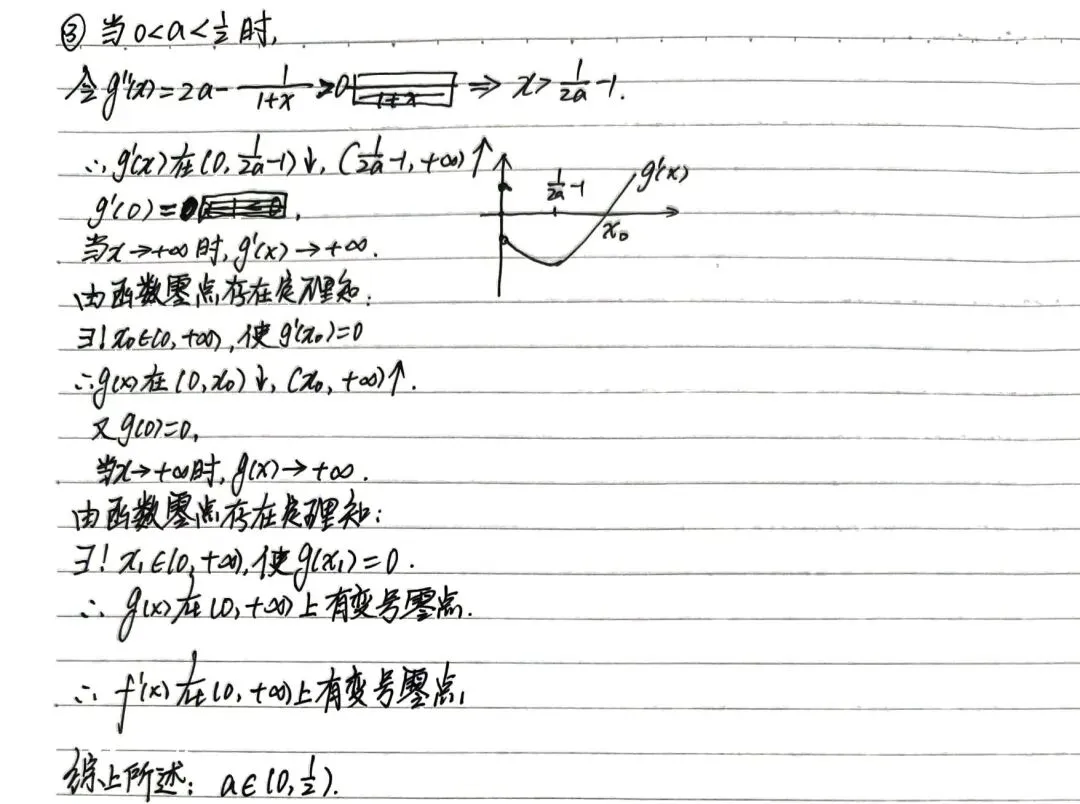 ③ 当0<a<1/2时,
令g''(x)=2a-1/(1+x)>0 ⇒ x>1/(2a)-1.
∴g'(x)在(0,1/(2a)-1)↓,(1/(2a)-1,+∞)↑
g'(0)=0,
当x→+∞时,g'(x)→+∞.
1/(2a)-1
g'(x)
x₀
由函数零点存在定理知:
∃!x₀∈(0,+∞),使g'(x₀)=0
∴g(x)在(0,x₀)↓,(x₀,+∞)↑.
又g(0)=0,
当x→+∞时,g(x)→+∞.
由函数零点存在定理知:
∃!x₁∈(0,+∞),使g(x₁)=0.
∴g(x)在(0,+∞)上有变号零点.
∴f'(x)在(0,+∞)上有变号零点,
综上所述:a∈(0,1/2).